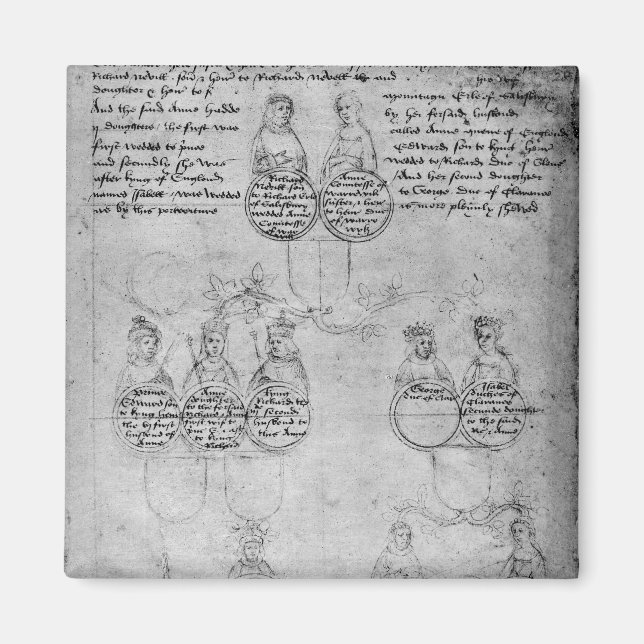 Richard Nevill son & heire to Richard Nevell &c and
doughter & heire to
And the said Anne hadde
ij doughters / the first was
first wedded to prince
and secondly she was
after kyng of Englond
named Issabell / was wedded
as by this portreture
his wif
Erle of Salisbury
by her forsaid husbond
called Anne quene of Englond
Edward son to kyng henr
wedded to Richard duc of Glouc
And her second doughter
to George duc of Clarence
is more playnly shewed
Richard
Nevill son
to Richard Erle
of Salisbury
wedded Anne
Comtesse
of war
wik
Anne
Comtesse of
warrewik
suster & heir
to henr duc
of warre
wyk
Prince
Edward son
to kyng henr
the vj first
husbond of
Anne
Anne
doughter
to the forsaid
Richard & Anne
first wif to
pnc E & aft
to kyng
Richard
kyng
Richard the
iij second
husbond to
this Anne
George
duc of Clar
Isabel
duches of
Clarence
seconde doughter
to the said
Ric & Anne